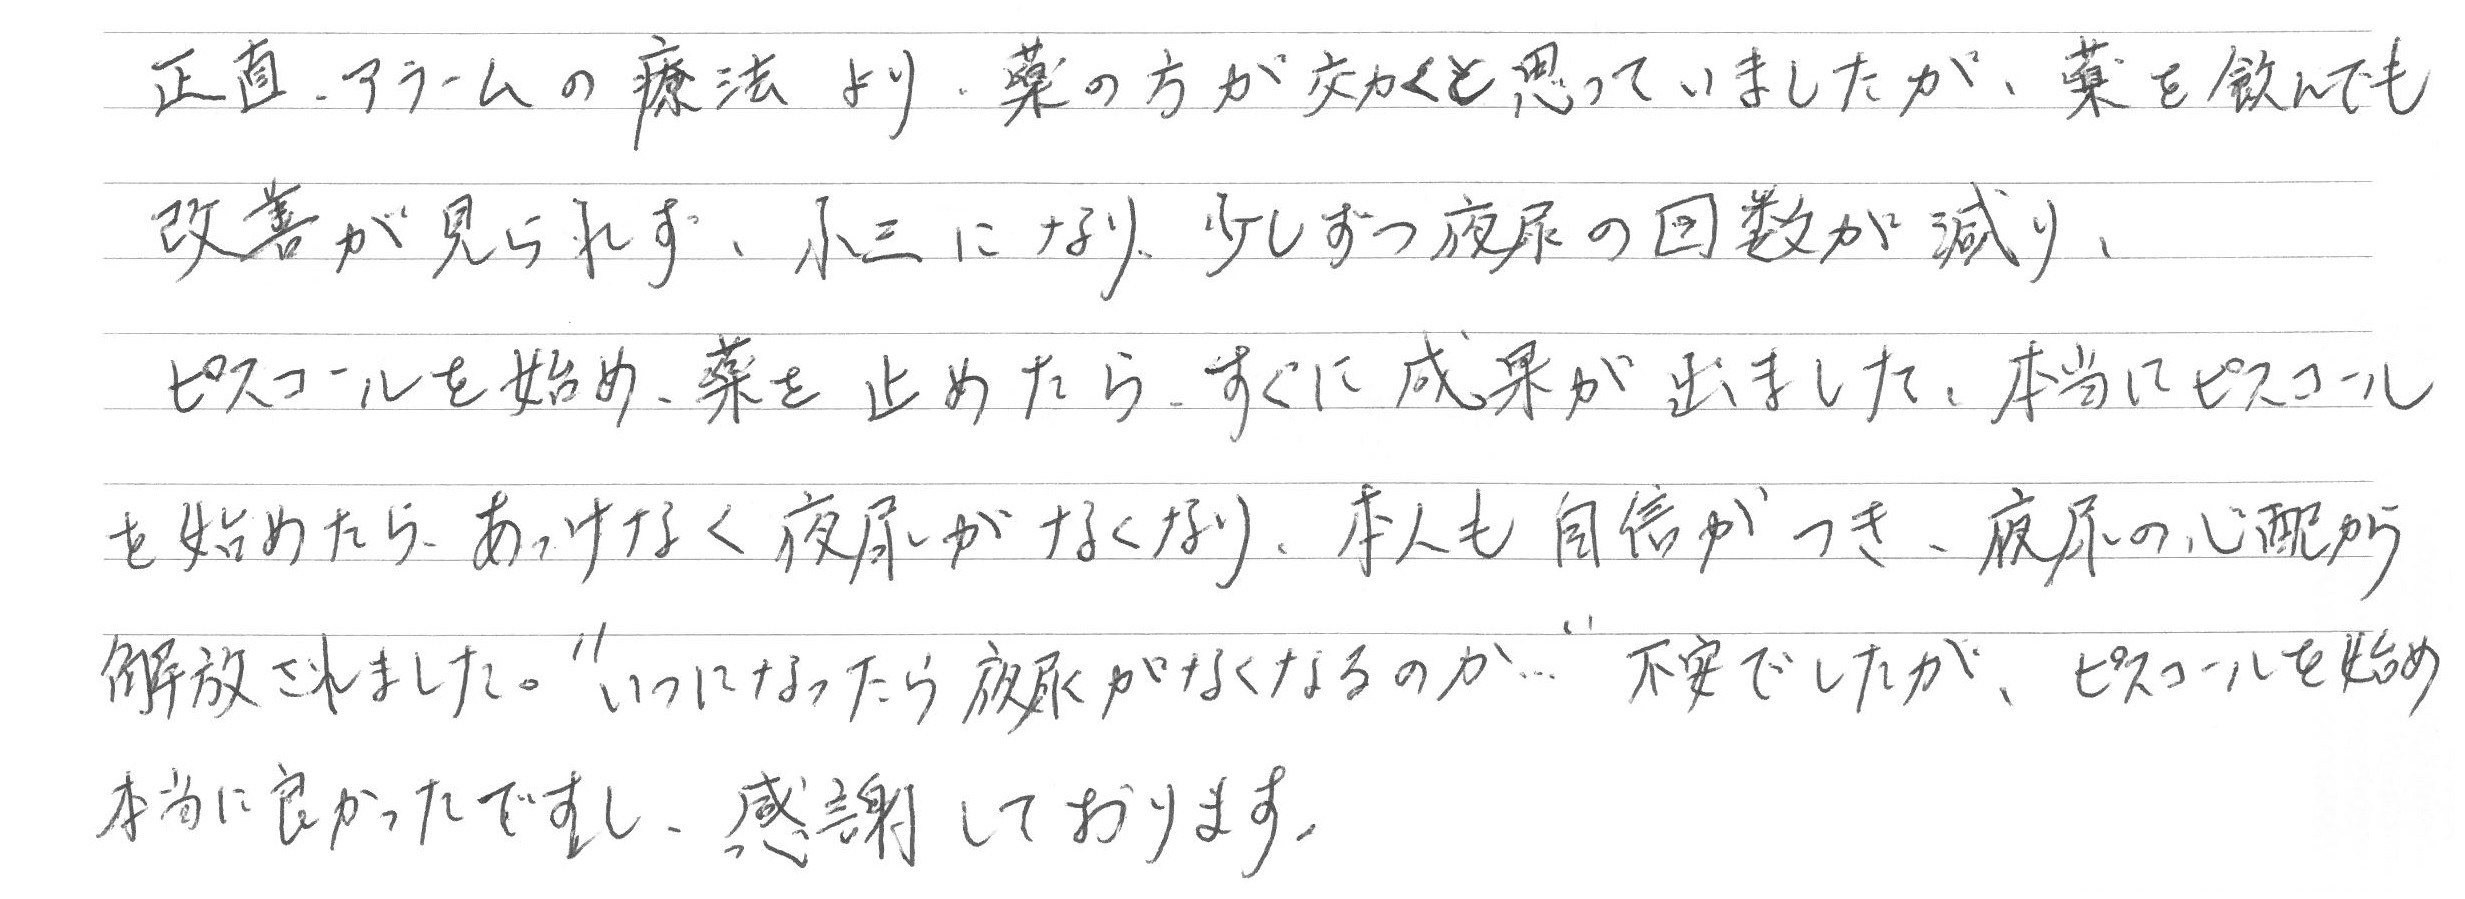 正直、アラームの療法より、薬の方が効くと思っていましたが、薬を飲んでも
改善が見られず、小三になり、少しずつ夜尿の回数が減り、
ピスコールを始め、薬を止めたら、すぐに成果が出ました、本当にピスコール
を始めたら、あっけなく夜尿がなくなり、本人も自信がつき、夜尿の心配から
解放されました。"いつになったら夜尿がなくなるのか…" 不安でしたが、ピスコールを始め
本当に良かったですし、感謝しております。